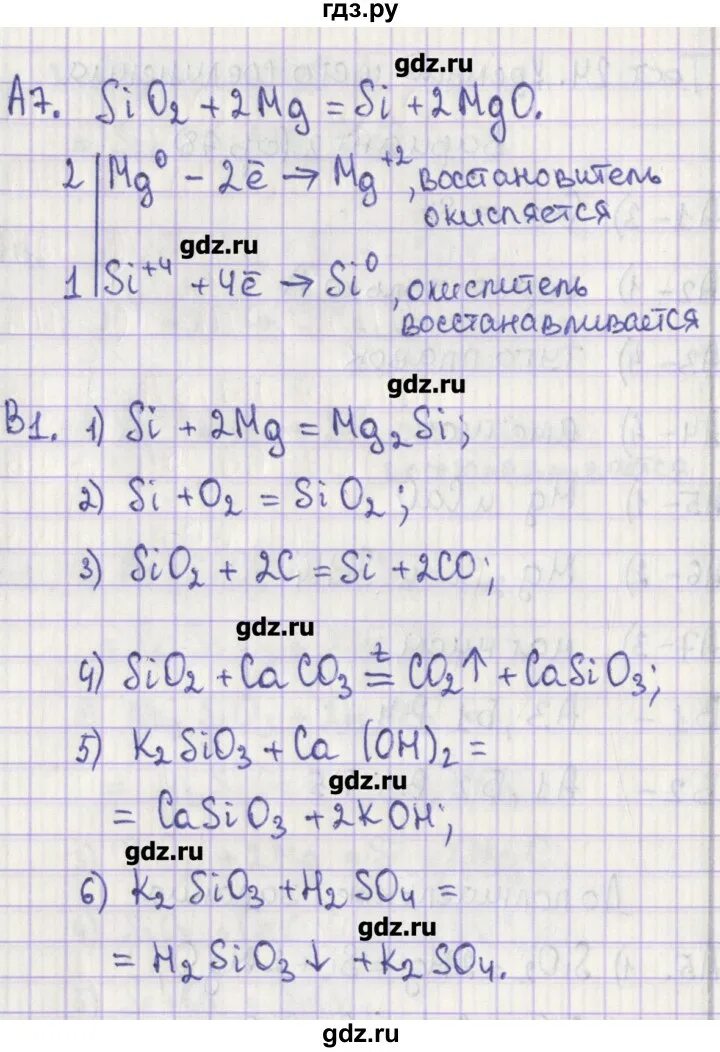 гдз.ру
gdz.ru
А7. SiO₂ + 2Mg = Si + 2MgO.
2 | Mg⁰ − 2ē → Mg⁺², восстановитель
окисляется
gdz.ru
1 | Si⁺⁴ + 4ē → Si⁰, окислитель
восстанавливается
gdz.ru
В1. 1) Si + 2Mg = Mg₂Si;
2) Si + O₂ = SiO₂;
3) SiO₂ + 2C = Si + 2CO;
gdz.ru
4) SiO₂ + CaCO₃ =ᵗ CO₂↑ + CaSiO₃;
5) K₂SiO₃ + Ca(OH)₂ =
gdz.ru
= CaSiO₃ + 2KOH;
gdz.ru
6) K₂SiO₃ + H₂SO₄ =
gdz.ru
= H₂SiO₃↓ + K₂SO₄.
gdz.ru